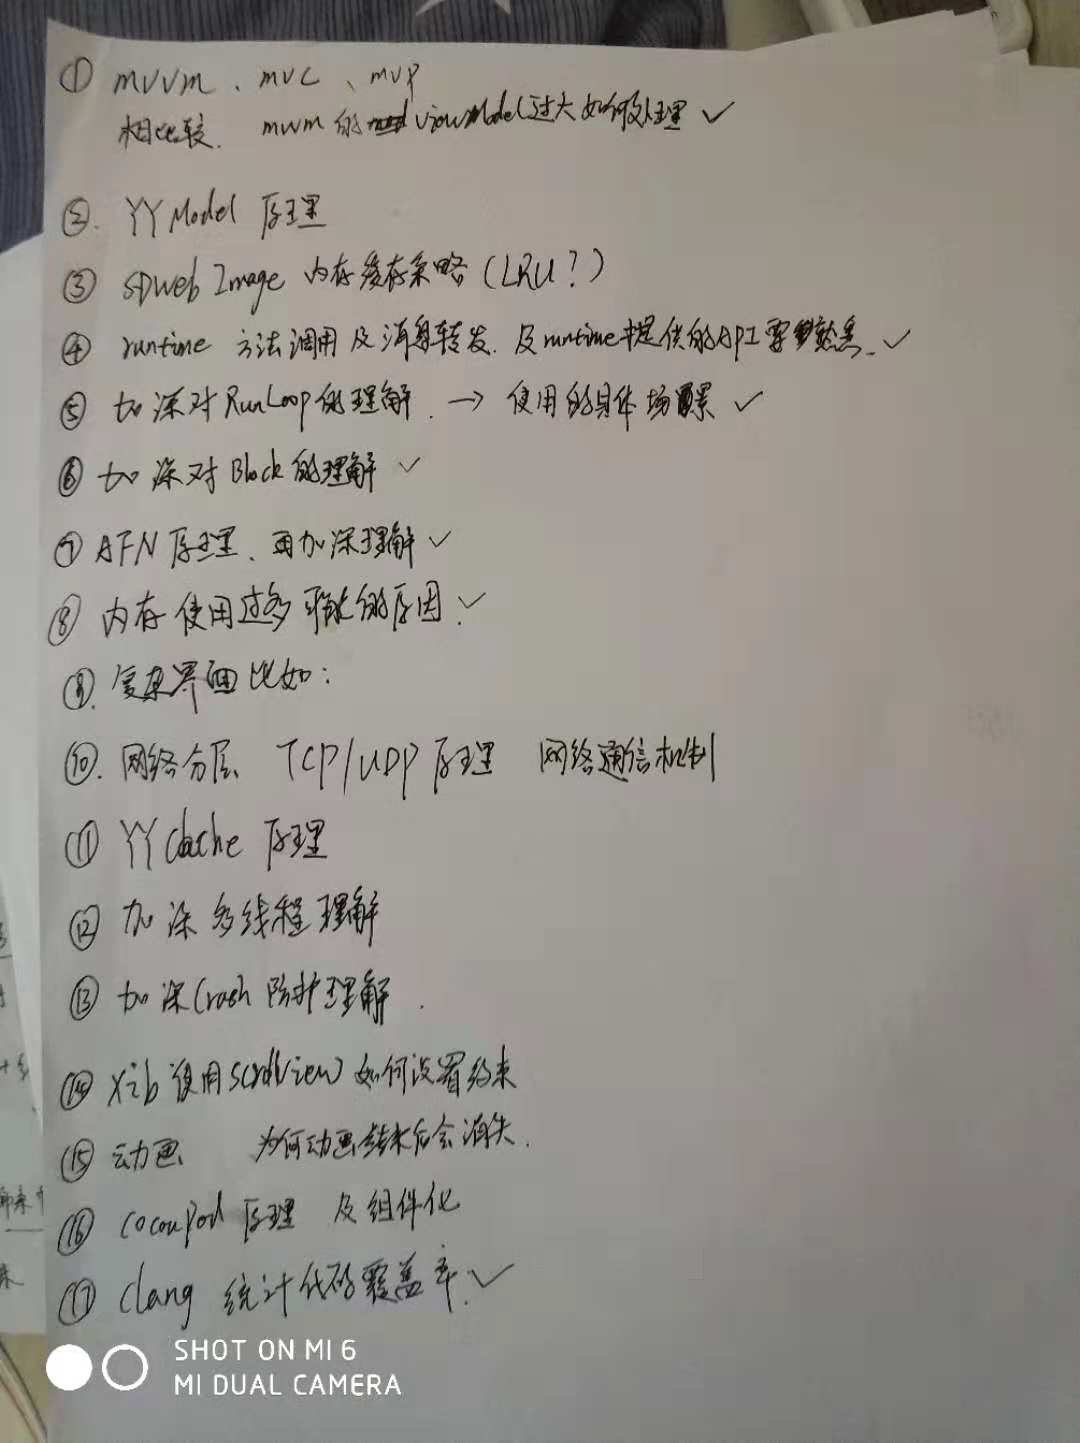 ① MVVM、MVC、MVP
相比较. MVVM的ViewModel过大如何处理 ✓
②. YYModel 原理
③ SDWebImage 内存缓存策略(LRU?)
④ runtime 方法调用及消息转发. 及runtime提供的API要熟悉. ✓
⑤ 加深对RunLoop的理解. → 使用的具体场景 ✓
⑥ 加深对Block的理解 ✓
⑦ AFN原理、再加深理解 ✓
⑧ 内存使用过多可能的原因. ✓
⑨. 复杂界面比如:
⑩. 网络分层 TCP/UDP原理 网络通信机制
⑪ YYCache 原理
⑫ 加深多线程理解
⑬ 加深Crash防护理解.
⑭ Xib使用ScrollView如何设置约束
⑮ 动画 为何动画结束后会消失.
⑯ cocoaPod 原理 及组件化
⑰ Clang 统计代码覆盖率. ✓
SHOT ON MI 6
MI DUAL CAMERA